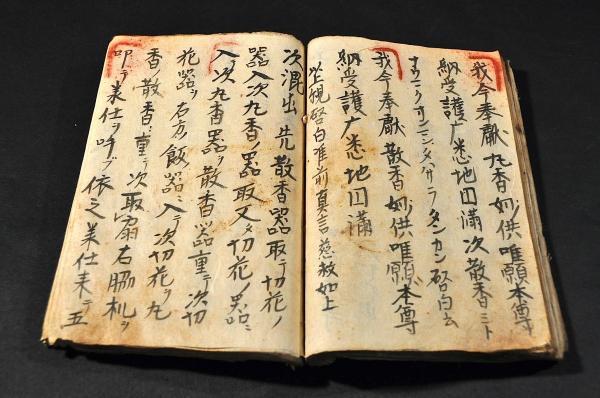 我今奉献丸香妙供唯願本尊
納受護广悉地円満次散香ミト
オウニクオンニンタハサラタンカン啓白云
我今奉献散香妙供唯願本尊
納受護广悉地円満
啓白唯前真言慈救如上
次混出先散香器取テ切花ノ
器入次丸香ノ器取又切花ノ器ニ
入次丸香器ヲ散香器重テ次切
花器ヲ右方飯器ニ入テ次切花ヲ丸
香ノ散香ニ重テ次取扇右脇机ヲ
叩テ美仕ヲ呼ブ依之美仕来テ五